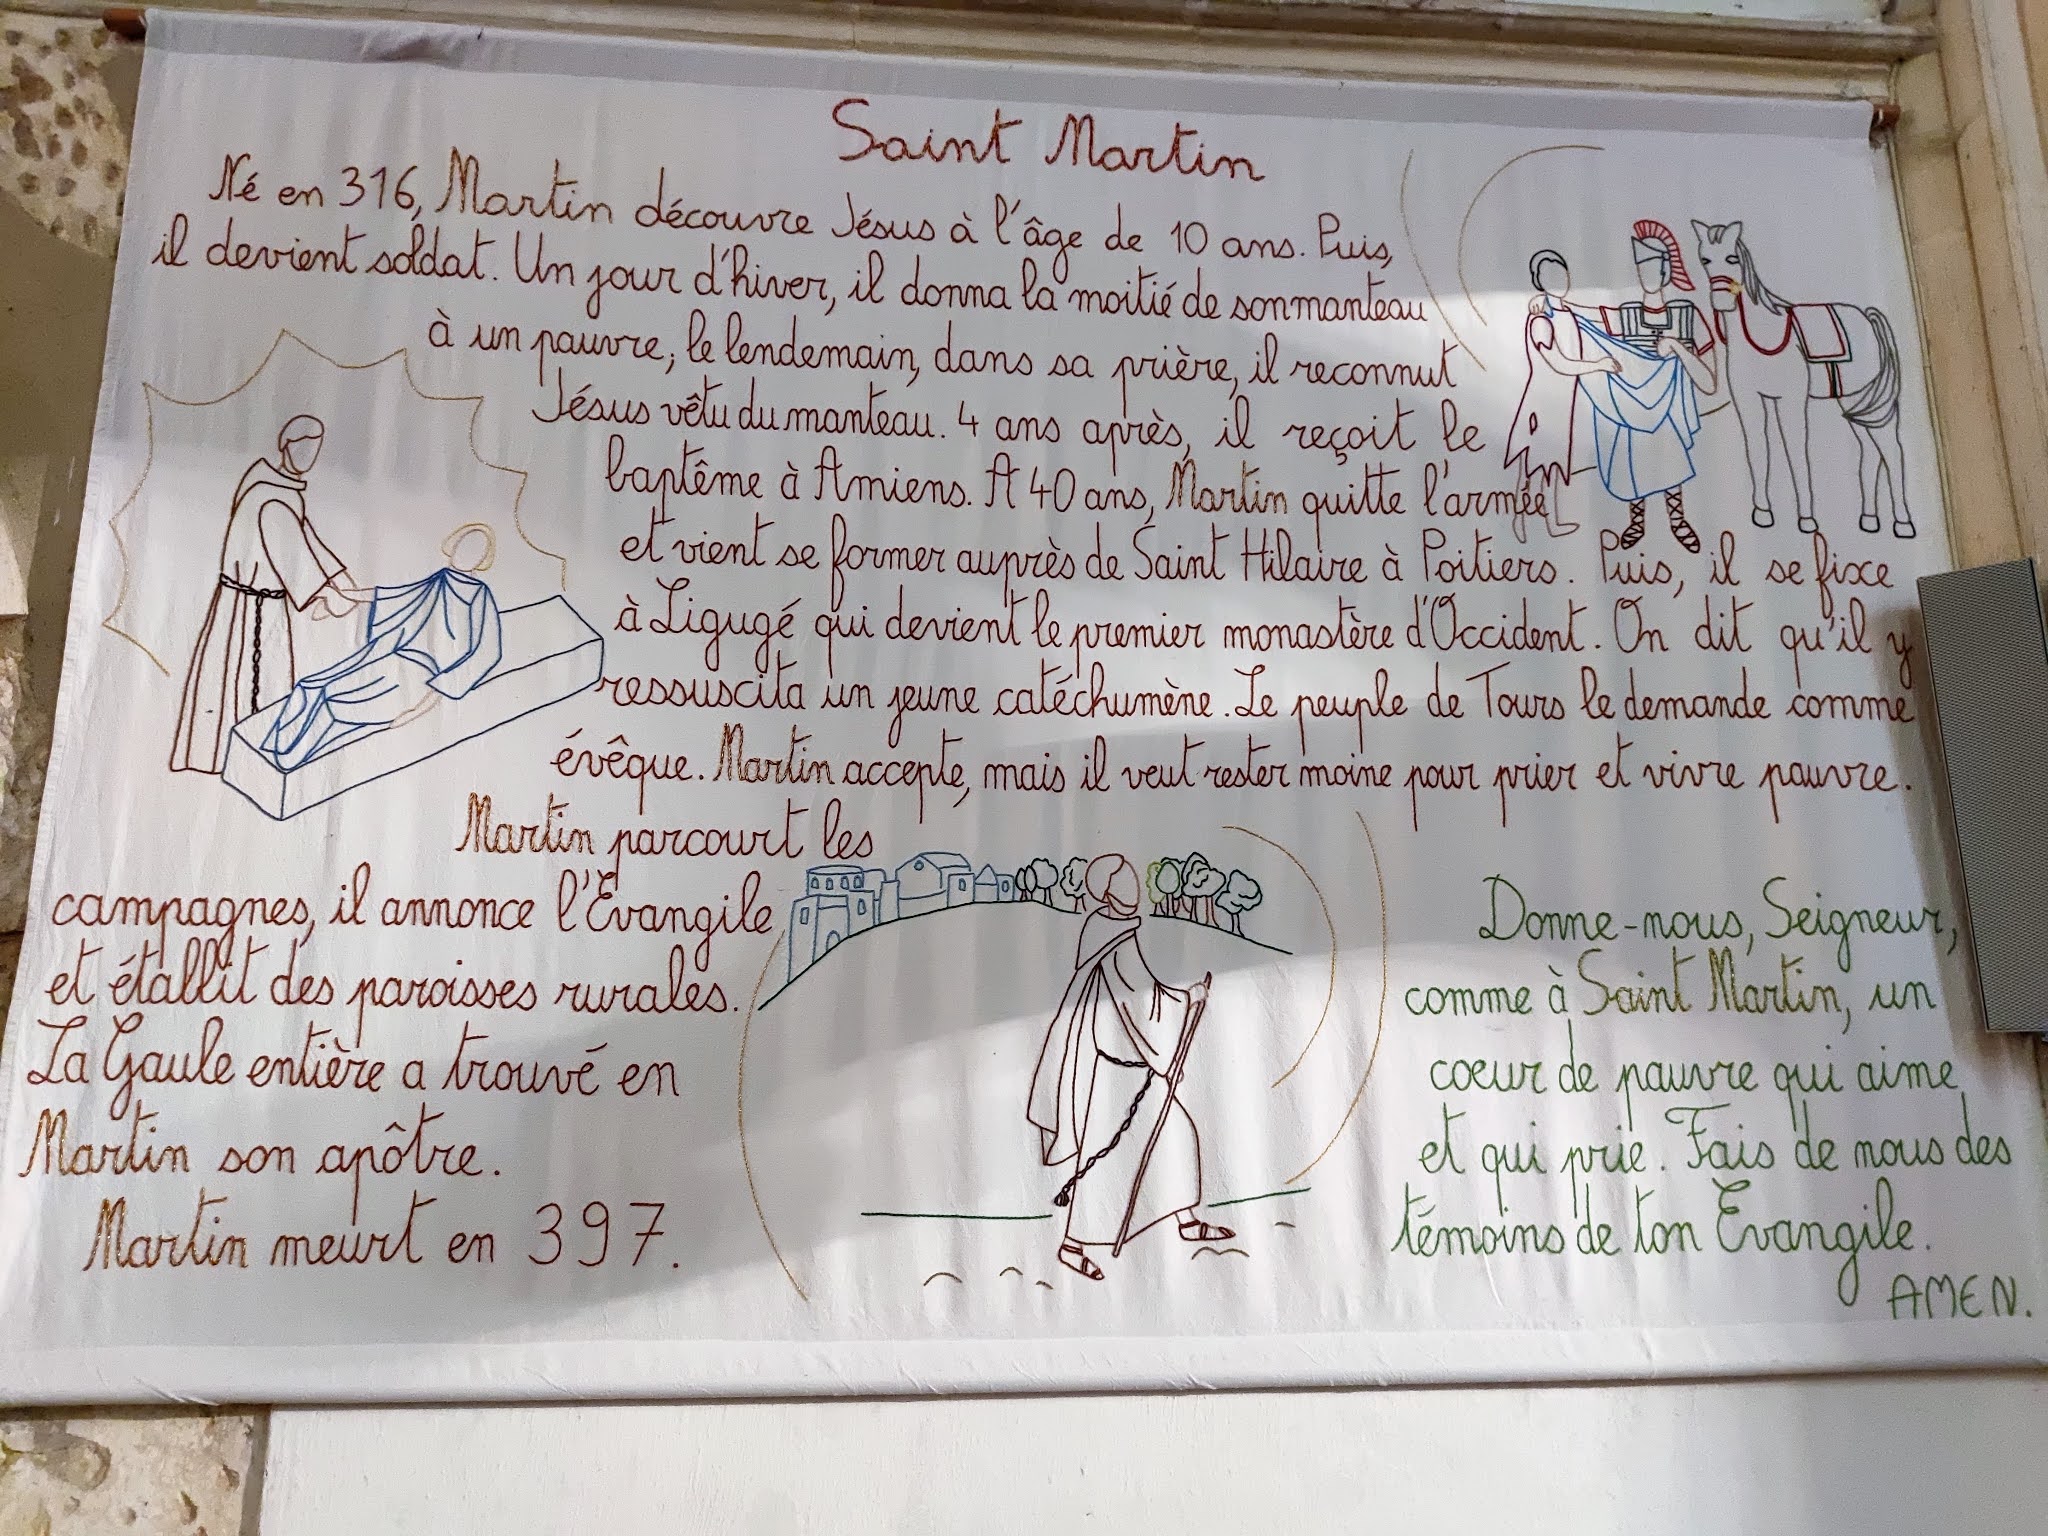 Saint Martin
Né en 316, Martin découvre Jésus à l'âge de 10 ans. Puis,
il devient soldat. Un jour d'hiver, il donna la moitié de son manteau
à un pauvre, le lendemain, dans sa prière, il reconnut
Jésus vêtu du manteau. 4 ans après, il reçoit le
baptême à Amiens. A 40 ans, Martin quitte l'armée
et vient se former auprès de Saint Hilaire à Poitiers. Puis, il se fixe
à Ligugé qui devient le premier monastère d'Occident. On dit qu'il y
ressuscita un jeune catéchumène. Le peuple de Tours le demande comme
évêque. Martin accepte, mais il veut rester moine pour prier et vivre pauvre.
Martin parcourt les
campagnes, il annonce l'Evangile
et établit des paroisses rurales.
La Gaule entière a trouvé en
Martin son apôtre.
Martin meurt en 397.
Donne-nous, Seigneur,
comme à Saint Martin, un
coeur de pauvre qui aime
et qui prie. Fais de nous des
témoins de ton Evangile.
AMEN.